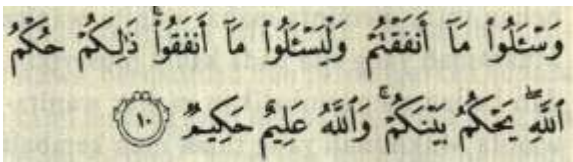 وَسْـَٔلُوا۟ مَآ أَنفَقْتُمْ وَلْيَسْـَٔلُوا۟ مَآ أَنفَقُوا۟ۚ ذَٰلِكُمْ حُكْمُ
ٱللَّهِۖ يَحْكُمُ بَيْنَكُمْۚ وَٱللَّهُ عَلِيمٌ حَكِيمٌ ١٠